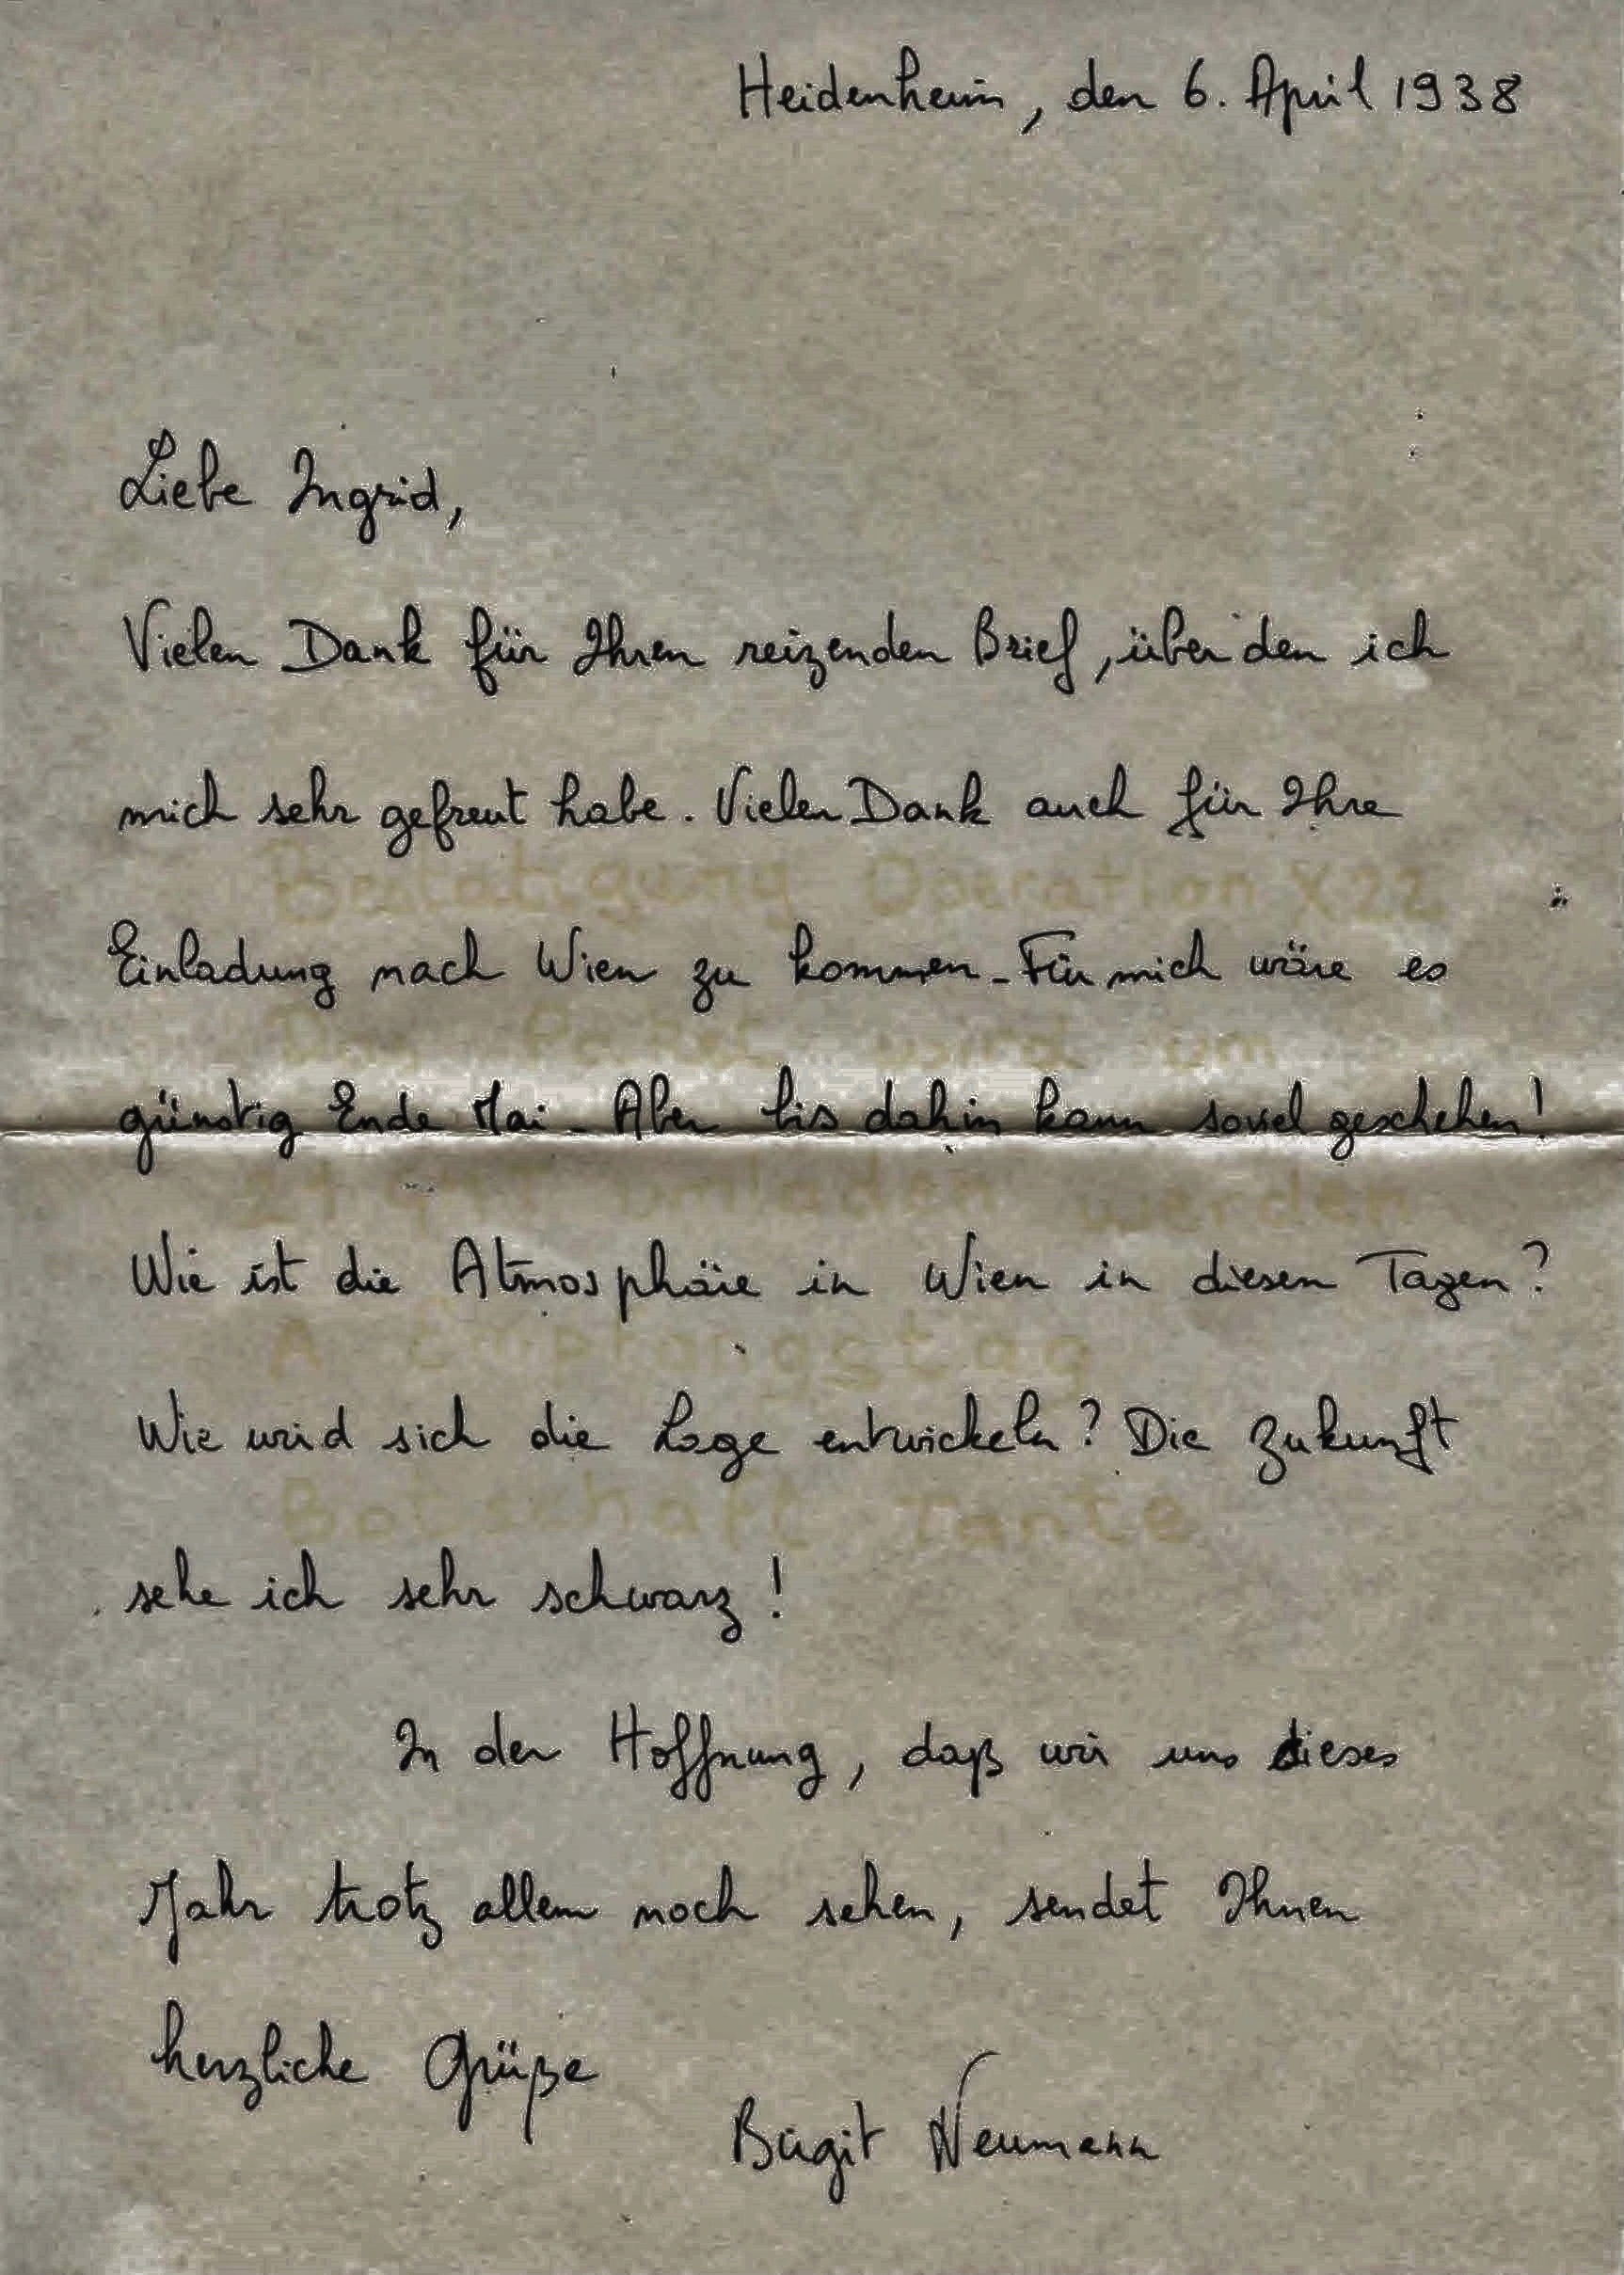 Heidenheim, den 6. April 1938
Liebe Ingrid,
Vielen Dank für Ihren reizenden Brief, über den ich
mich sehr gefreut habe. Vielen Dank auch für Ihre
Bestätigung Operation X22
Einladung nach Wien zu kommen - Für mich wäre es
Das Paket wird um
günstig Ende Mai - Aber bis dahin kann soviel geschehen!
umladen werden
Wie ist die Atmosphäre in Wien in diesen Tagen?
A Empfangstag
Wie wird sich die Lage entwickeln? Die Zukunft
Botschaft Tante
sehe ich sehr schwarz!
In der Hoffnung, daß wir uns dieses
Jahr trotz allem noch sehen, sendet Ihnen
herzliche Grüße
Birgit Neumann